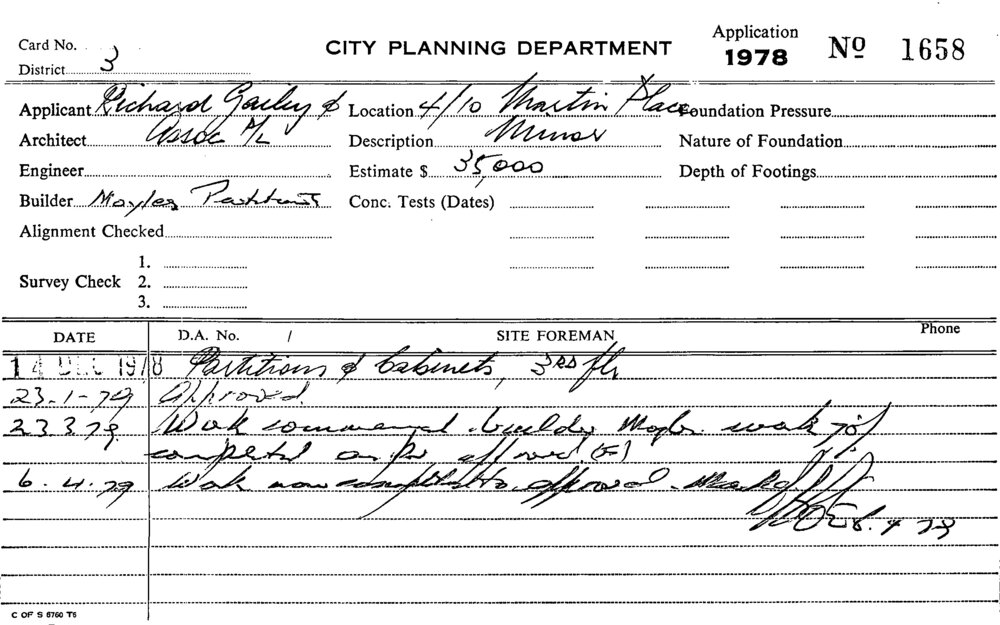 Card No.
CITY PLANNING DEPARTMENT
Application
1978 Nº 1658
District 3
Applicant Richard Gailey & Location 4/10 Martin Place Foundation Pressure
Architect Assoc P/L Description Minor Nature of Foundation
Engineer Estimate $ 35,000 Depth of Footings
Builder Mayles Partitions Conc. Tests (Dates)
Alignment Checked
1.
Survey Check 2.
3.
DATE D.A. No. / SITE FOREMAN Phone
14 DEC 1978 Partitions & Cabinets, 3RD flr
23-1-79 Approved.
23.3.79 Work commenced builder work 70%
completed as per approval
6.4.79 Work now completed to approval
6.4.79
C OF S 6760 T6